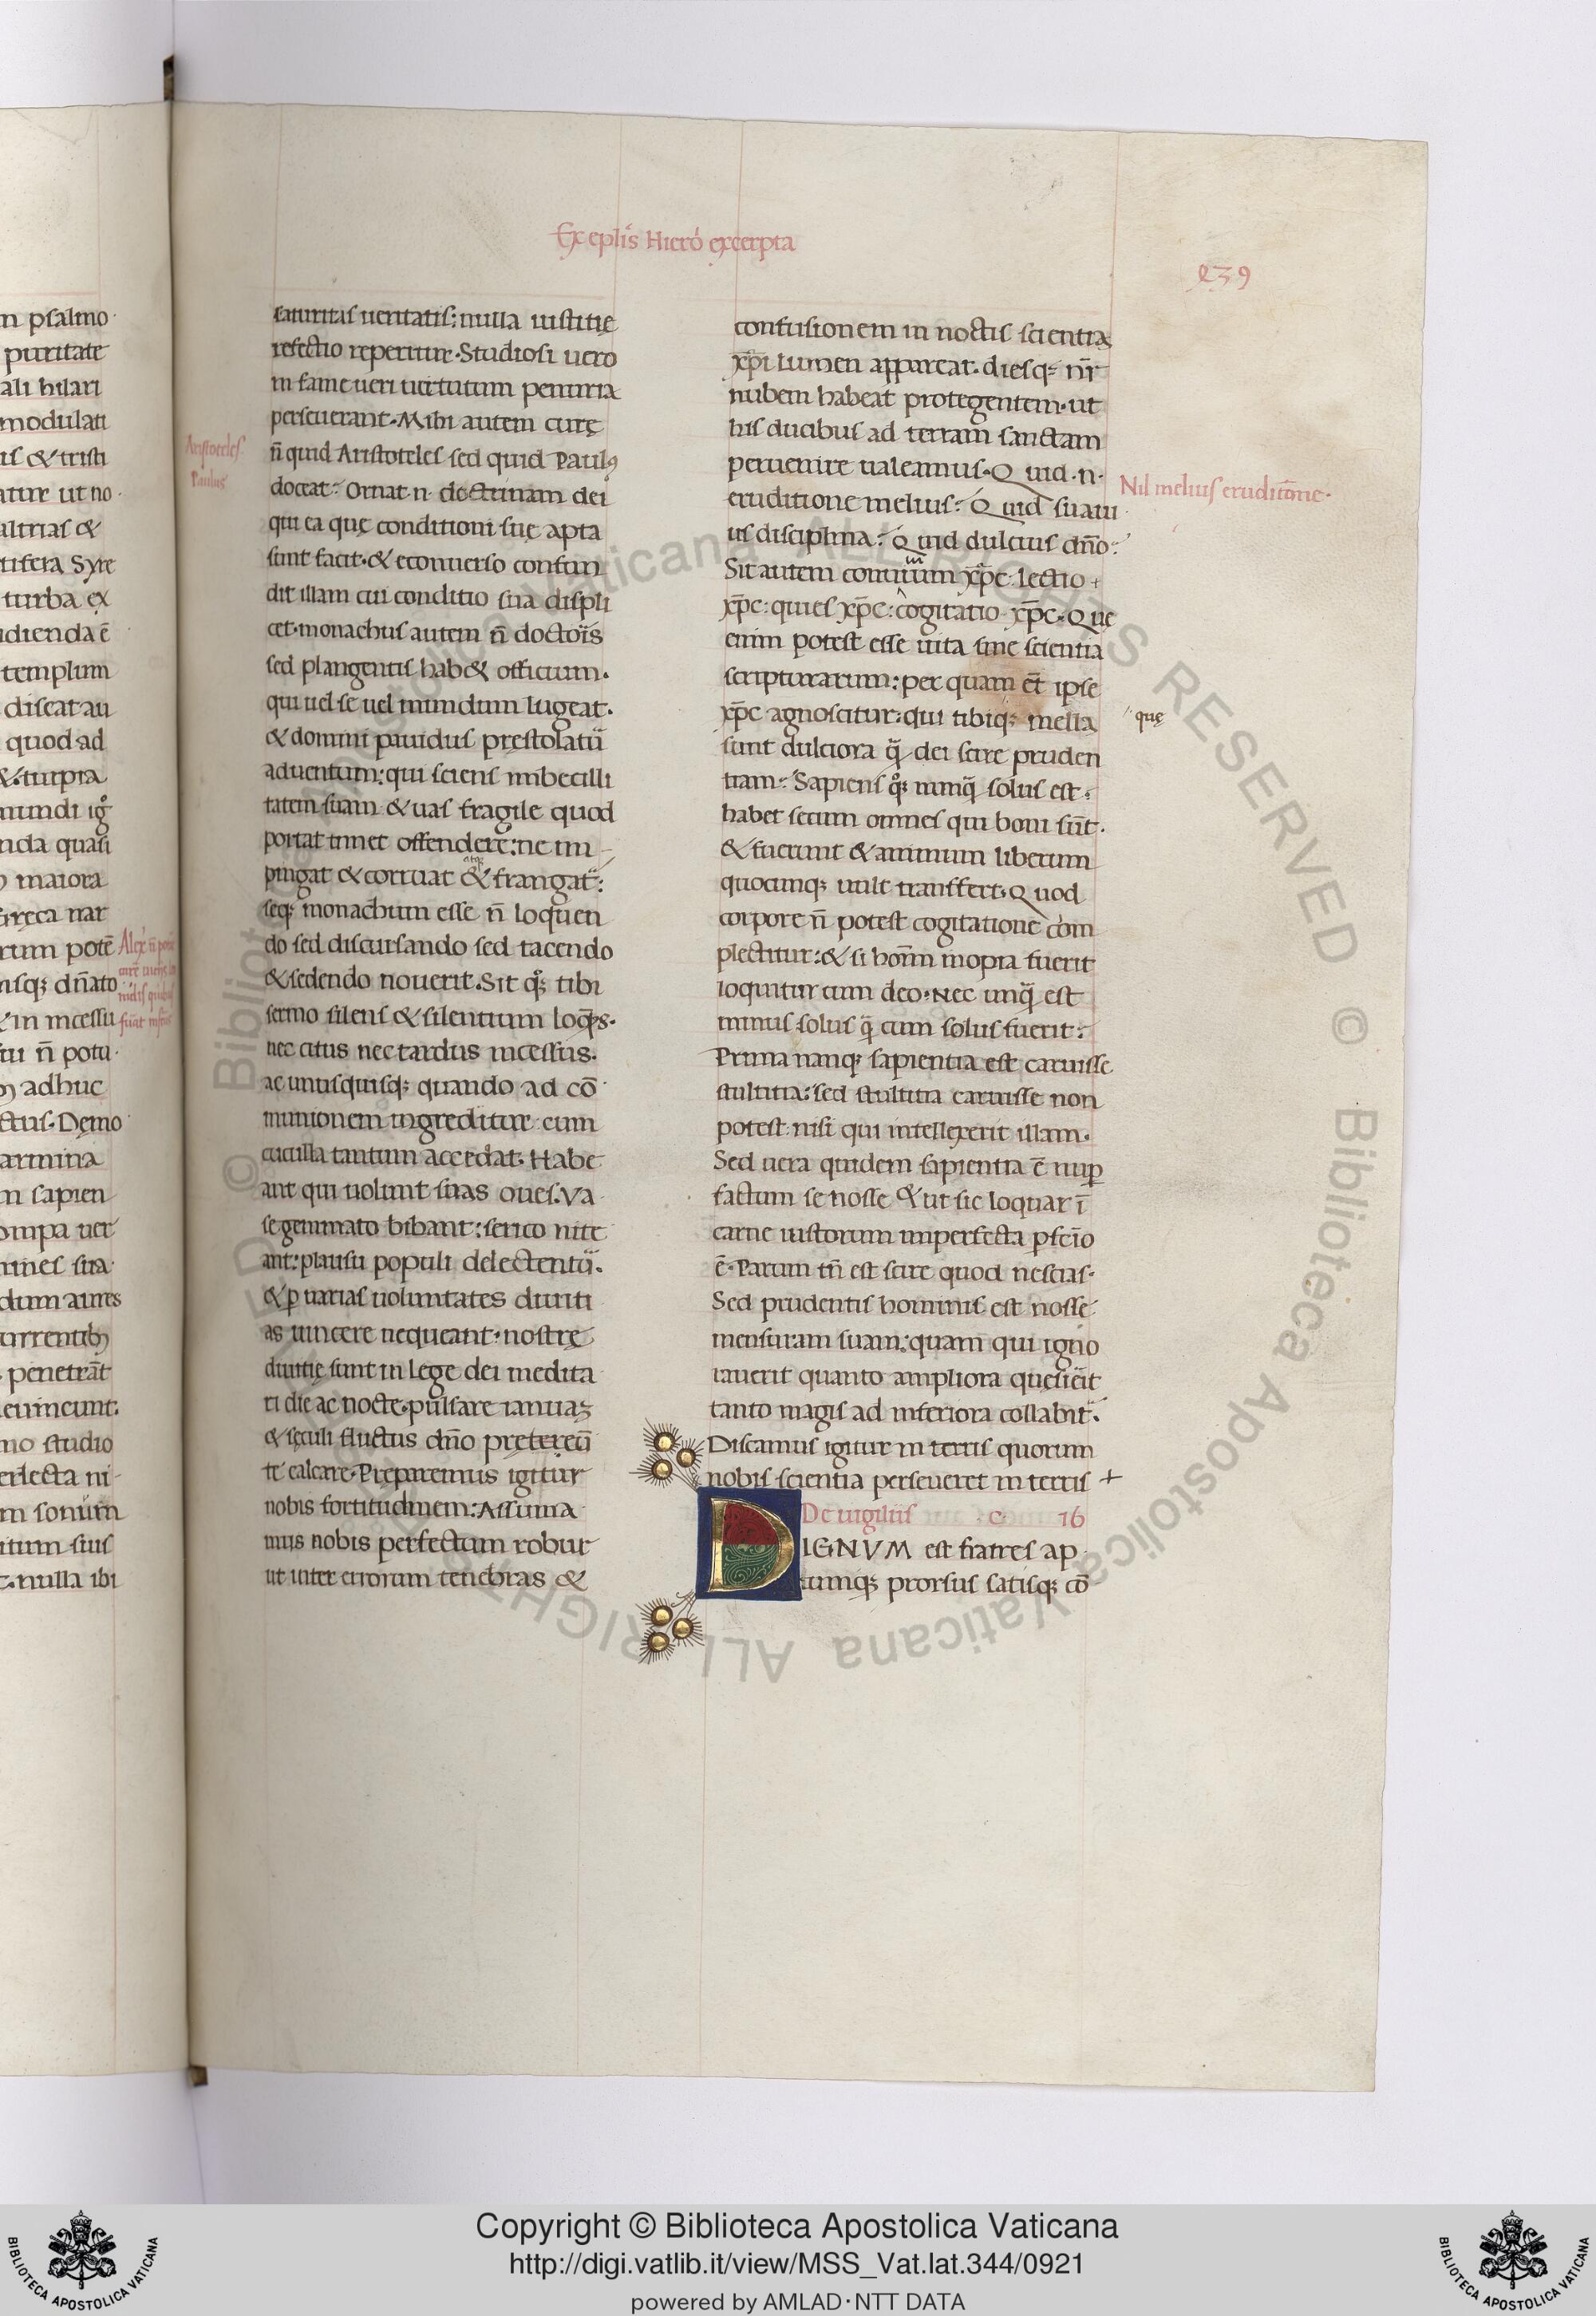 Ex eplis Hiero excerpta
239
n psalmo
puritate
ali hilari
modulati
is & tristi
atur ut no
altrias &
tifera Syre
turba ex
dienda ē
templum
discat au
quod ad
& turpia
mundi ig̊
nda quasi
maiora
Greca nar
rum potē
isq; dn̄ato
& in incessu
su n̄ potu
adhuc
ctus. Dęmo
armina
n sapien
ompa uer
mnes sua
dum aures
urrentib9
penetrāt
euincunt.
mo studio
erlecta ni
m sonum
itum suis
t. nulla ibi
Aristoteles
Paulus
saturitas ueritatis: nulla iustitię
refectio reperitur. Studiosi uero
in fame ueri uirtutum penuria
perseuerant. Mihi autem curę
n̄ quid Aristoteles sed quid Paul9
doceat: Ornat .n. doctrinam dei
qui ea quę conditioni suę apta
sunt facit. & econuerso confun
dit illam cui conditio sua displi
cet. monachus autem n̄ doctoris
sed plangentis hab& officium.
qui uel se uel mundum lugeat.
& domini pauidus prestolatu᷑
aduentum: qui sciens imbecilli
tatem suam & uas fragile quod
portat timet offendere: ne im
pingat & corruat & frangat᷑:
atq;
seq; monachum esse n̄ loquen
do sed discursando sed tacendo
& sedendo nouerit. Sit q̊; tibi
sermo silens & silentium loq̄s.
nec citus nec tardus incessus.
ac untisquisq; quando ad cō
munionem ingreditur cum
cuculla tantum accedat. Habe
ant qui uolunt suas oues. Va
se gemmato bibant: serico nite
ant: plausu populi delectentu᷑.
& ꝑ uarias uoluntates diuiti
as uincere nequeant. nostrę
diuitię sunt in lege dei medita
ri die ac nocte. pulsare ianuaȝ
& sęculi fluctus dn̄o pretereū
te calcare. Preparemus igitur
nobis fortitudinem: Assuma
mus nobis perfectum robur
ut inter errorum tenebras &
confusionem in noctis scientia
xp̄i lumen appareat. diesq; nr̄
nubem habeat protegentem. ut
his ducibus ad terram sanctam
peruenire ualeamus. Quid .n.
eruditione melius: Quid suaui
us disciplina: Quid dulcius dn̄o:
Sit autem conuiuum xp̄c: lectio
xp̄c: quies xp̄c: cogitatio xp̄c. Que
enim potest esse uita sine scientia
scripturarum: per quam et̄ ipse
xp̄c agnoscitur. qui tibiq; mella
sunt dulciora q̄ dei scire pruden
tiam: Sapiens q̊; nunq̄ solus est.
habet secum omnes qui boni sūt.
& fuerunt & animum liberum
quocunq; uult transfert. Quod
corpore n̄ potest cogitatione com
plectitur: & si homn inopia fuerit
loquitur cum deo. Nec unq̄ est
minus solus q̄ cum solus fuerit:
Prima nanq; sapientia est caruisse
stultitia: sed stultitia caruisse non
potest. nisi qui intellexerit illam.
Sed uera quidem sapientia ē nuꝑ
factum se nosse & ut sic loquar ī
carne iustorum imperfecta ꝑfcio
ē. Parum tn̄ est scire quod nescias.
Sed prudentis hominis est nosse
mensuram suam: quam qui igno
rauerit quanto ampliora quesierit
tanto magis ad inferiora collabit᷑.
Discamus igitur in terris quorum
nobis scientia perseueret in terris +
De uigiliis c. 16
DIGNVM est fratres ap
tumq; prorsus satisq; cō
Nil melius eruditione.
quę
Copyright © Biblioteca Apostolica Vaticana
http://digi.vatlib.it/view/MSS_Vat.lat.344/0921
powered by AMLAD·NTT DATA
BIBLIOTECA APOSTOLICA VATICANA
BIBLIOTECA APOSTOLICA VATICANA